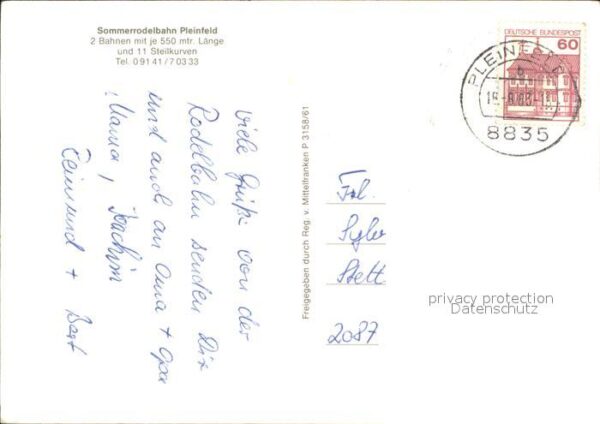 Sommerrodelbahn Pleinfeld
2 Bahnen mit je 550 mtr. Länge
und 11 Steilkurven
Tel. 0 91 41 / 7 03 33
Viele Grüße von der
Rodelbahn senden Dir
und auch an Oma + Opa
Mama, Joachim
+
Freigegeben durch Reg. v. Mittelfranken P 3158/61
DEUTSCHE BUNDESPOST
60
PLEINFELD
b
8835
Frl.
Sylv
Stett
2087
privacy protection
Datenschutz